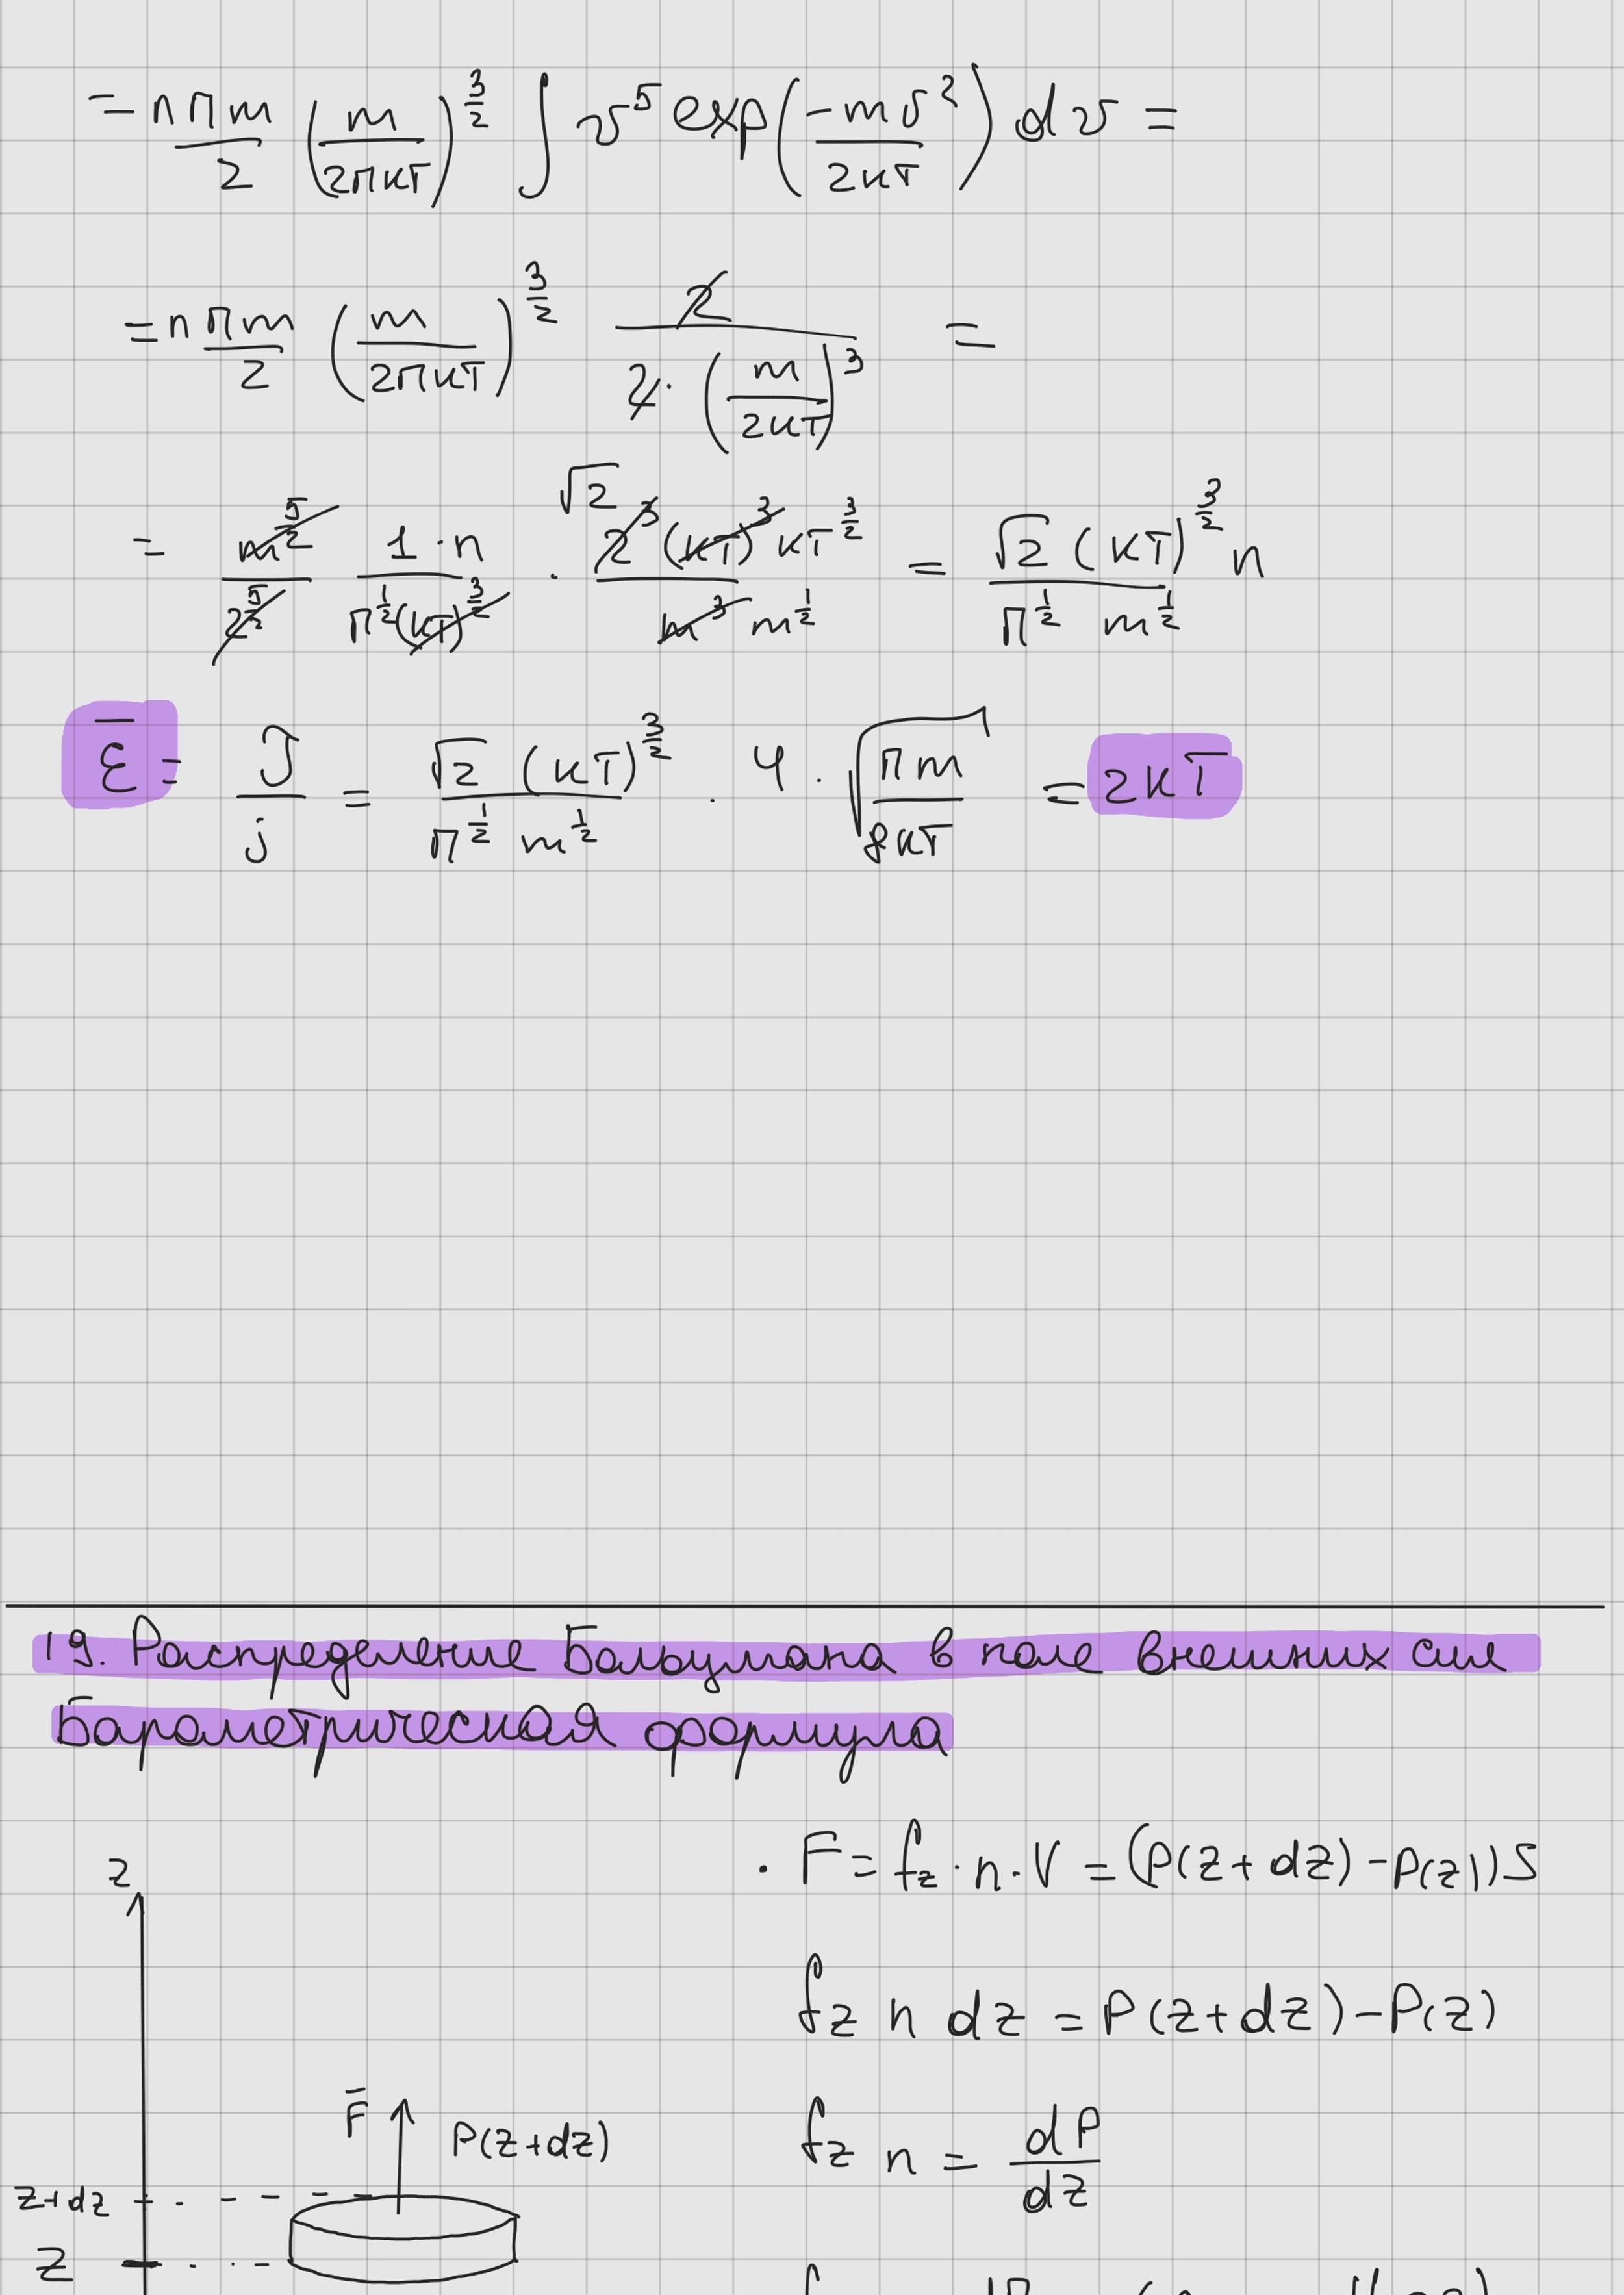 = nπm/2 (m/2πkT)^{3/2} ∫ v^5 exp(-mv^2/2kT) dv =
= n πm/2 (m/2πkT)^{3/2} 2/(2·(m/2kT)^3) =
= m^{5/2}/2^{5/2} 1·n/(π^{1/2}(kT)^{3/2}) · √2 2^3 (kT)^3 kT^{3/2}/(m^3 m^{1/2}) = √2 (kT)^{3/2} n/(π^{1/2} m^{1/2})
ε̄ = J/j = √2 (kT)^{3/2}/(π^{1/2} m^{1/2}) · 4 · √(πm/8kT) = 2kT
19. Распределение Больцмана в поле внешних сил
Барометрическая формула
· F = f_z · n · V = (P(z+dz) - P(z)) S
z
f_z n dz = P(z+dz) - P(z)
f_z n = dP/dz
F̄ P(z+dz)
z+dz
z